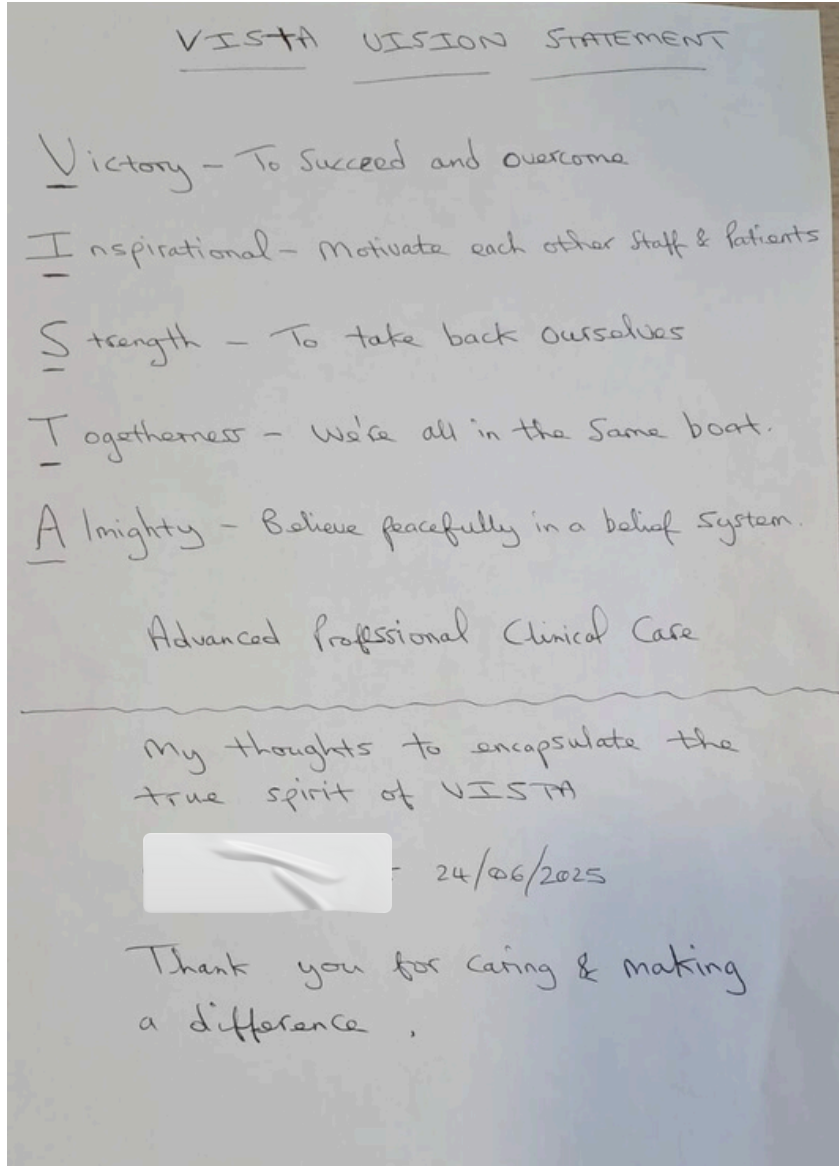 VISTA VISION STATEMENT
Victory - To Succeed and overcome
Inspirational - Motivate each other Staff & Patients
Strength - To take back ourselves
Togetherness - We're all in the Same boat.
Almighty - Believe peacefully in a belief System.
Advanced Professional Clinical Care
My thoughts to encapsulate the
true spirit of VISTA
- 24/06/2025
Thank you for caring & making
a difference.